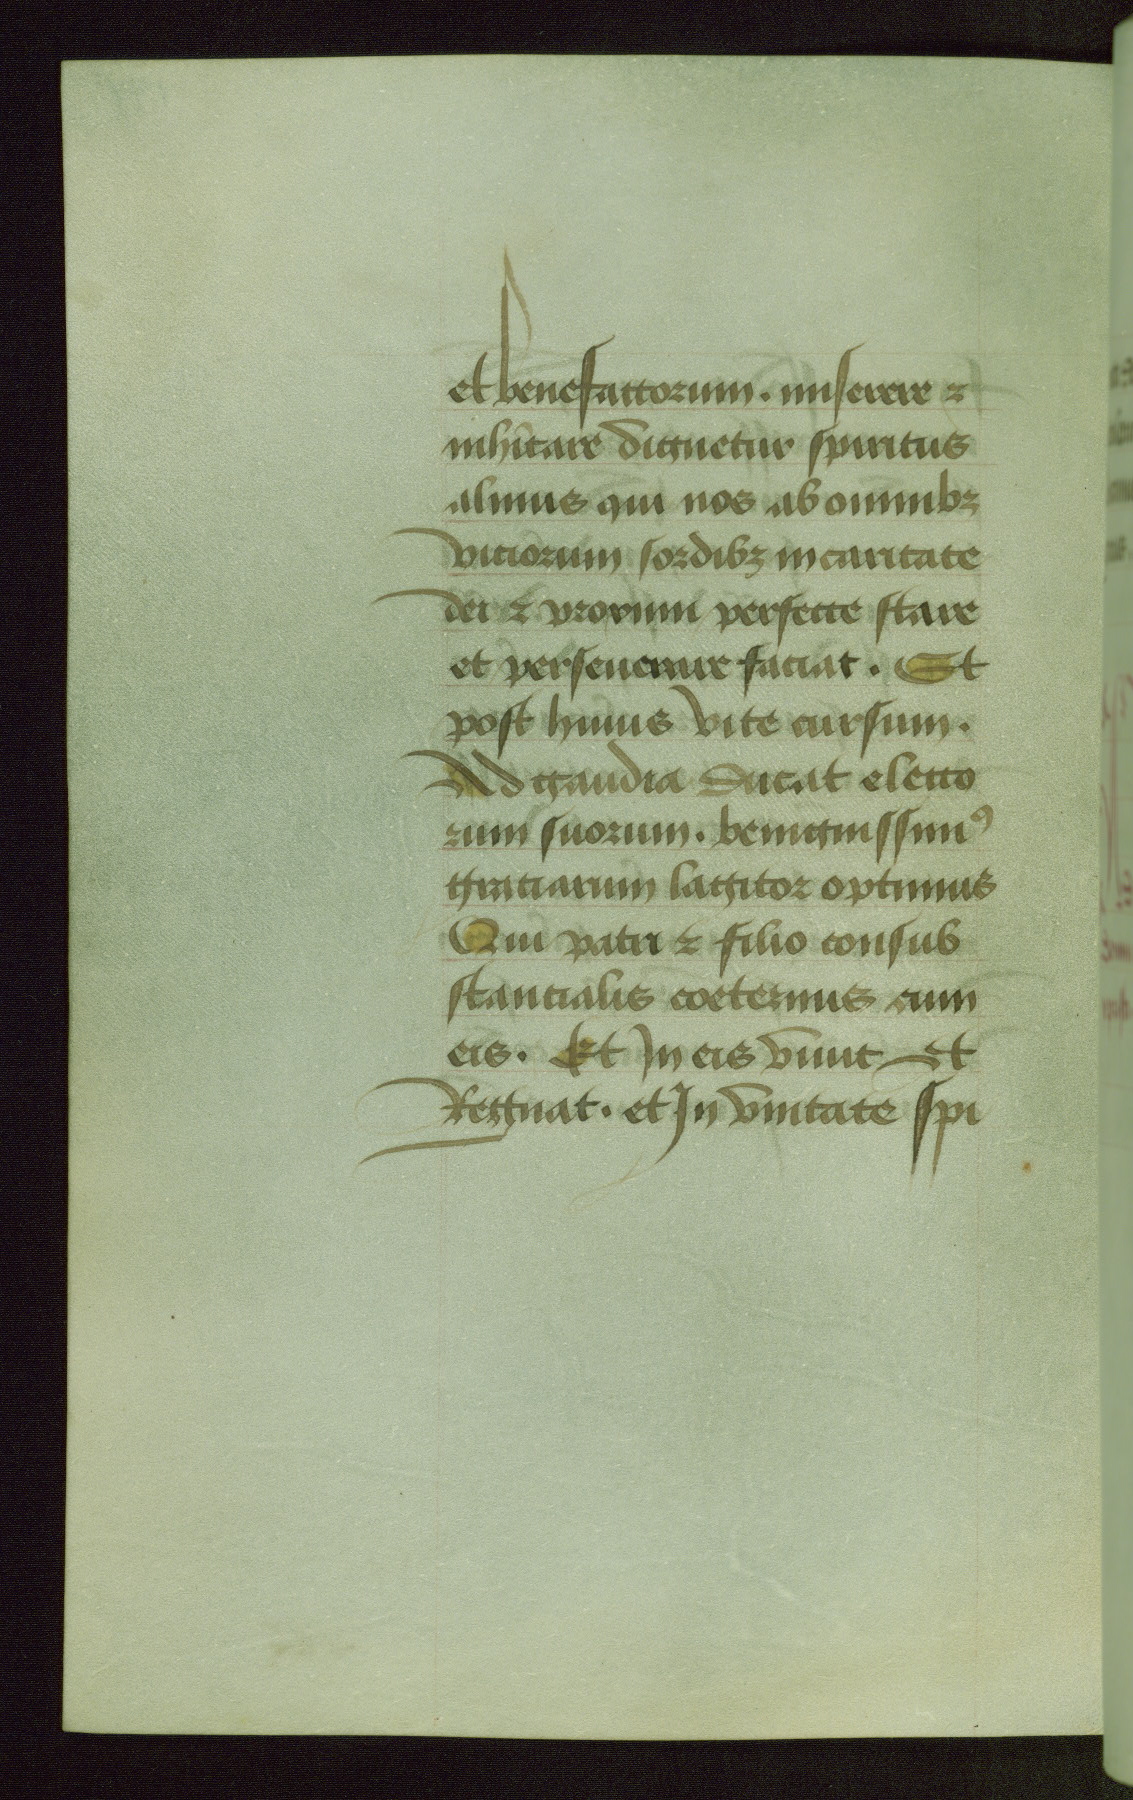 et benefactorum. miserere ⁊
inhitare dignetur spiritus
almus qui nos ab omnibꝫ
viciorum sordibꝫ in caritate
dei ⁊ proximi perfecte stare
et perseuerare faciat. Et
post huius vite cursum.
Ad gaudia ducat electo
rum suorum. benignissimꝰ
gratiarum lagitor optimus
Qui patri ⁊ filio consub
stancialis coeternus cum
eis. Et In eis viuit et
Regnat. et In vnitate spi